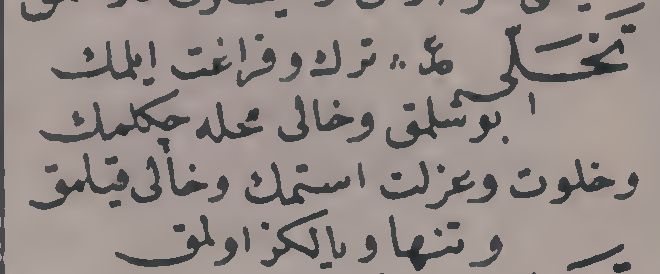 تَخَلّى مد ترك و فراغت ايلمك
بوشلمق و خالى محله چكلمك
و خلوت و عزلت استمك و خالى قيلمق
و تنها و يالكز اولمق